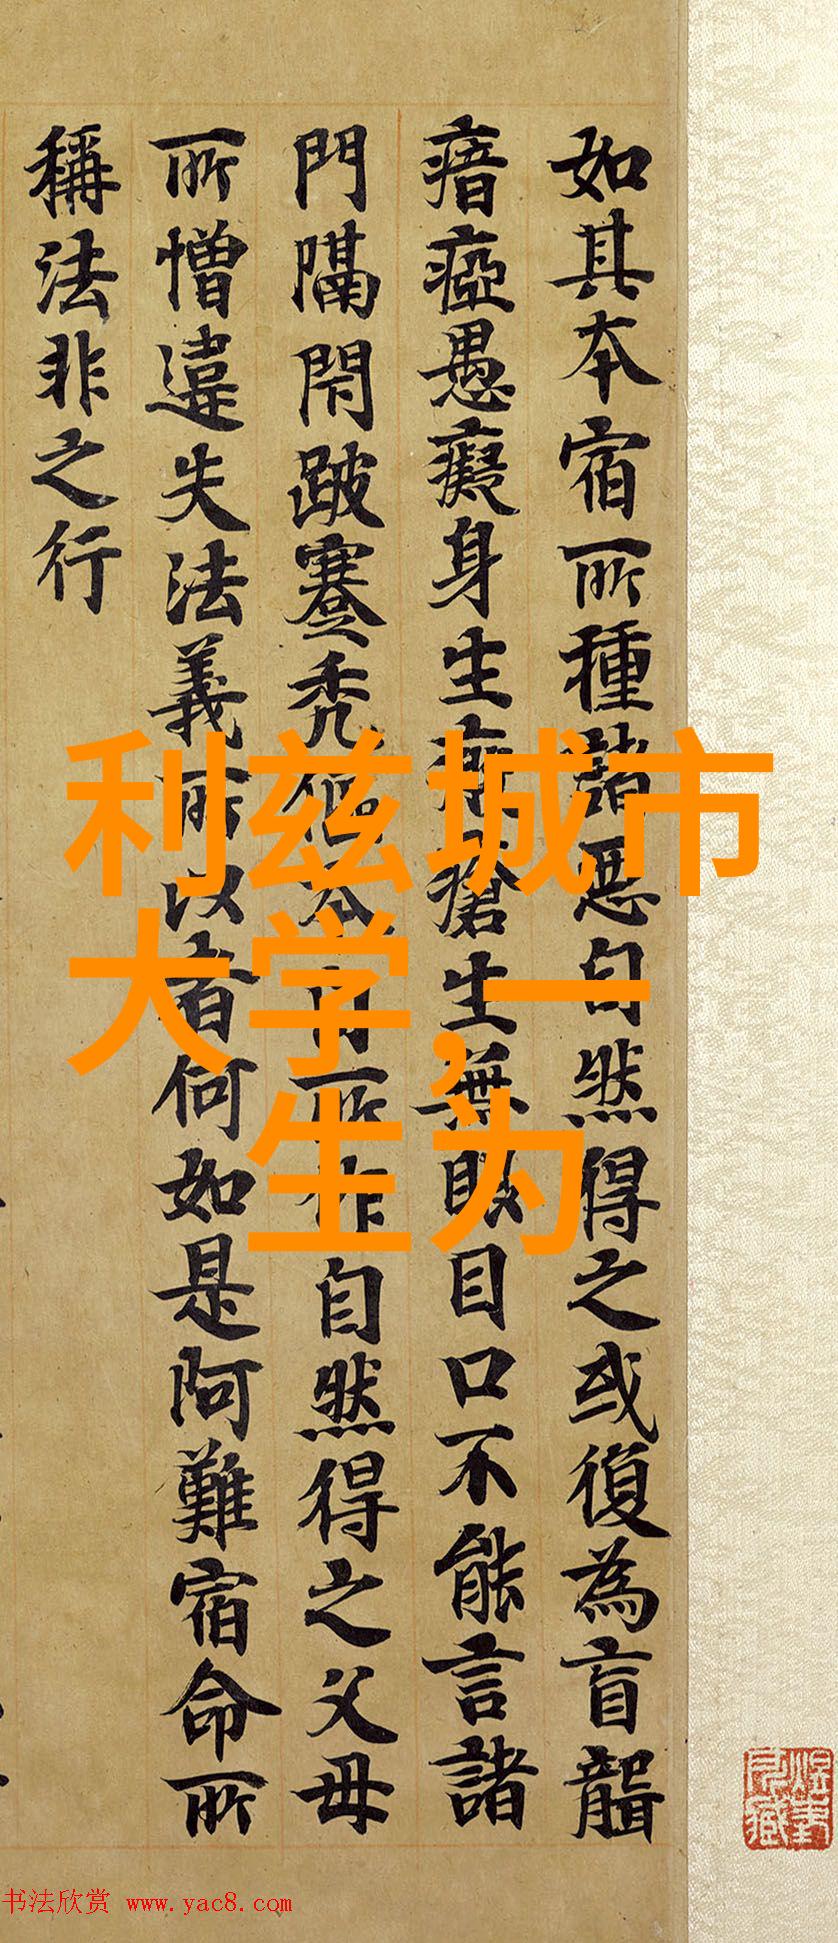 如其本宿所種諸惡自然得之或復為盲聾
瘖瘂愚癡身生瘡生無眼目口不能言諸
門隔閇跛蹇禿傴本自所作自然得之父母
所憎違失法義所以者何如是阿難宿命所
稱法非之行
利兹城市
大学，一
生为
书法欣赏 www.yac8.com